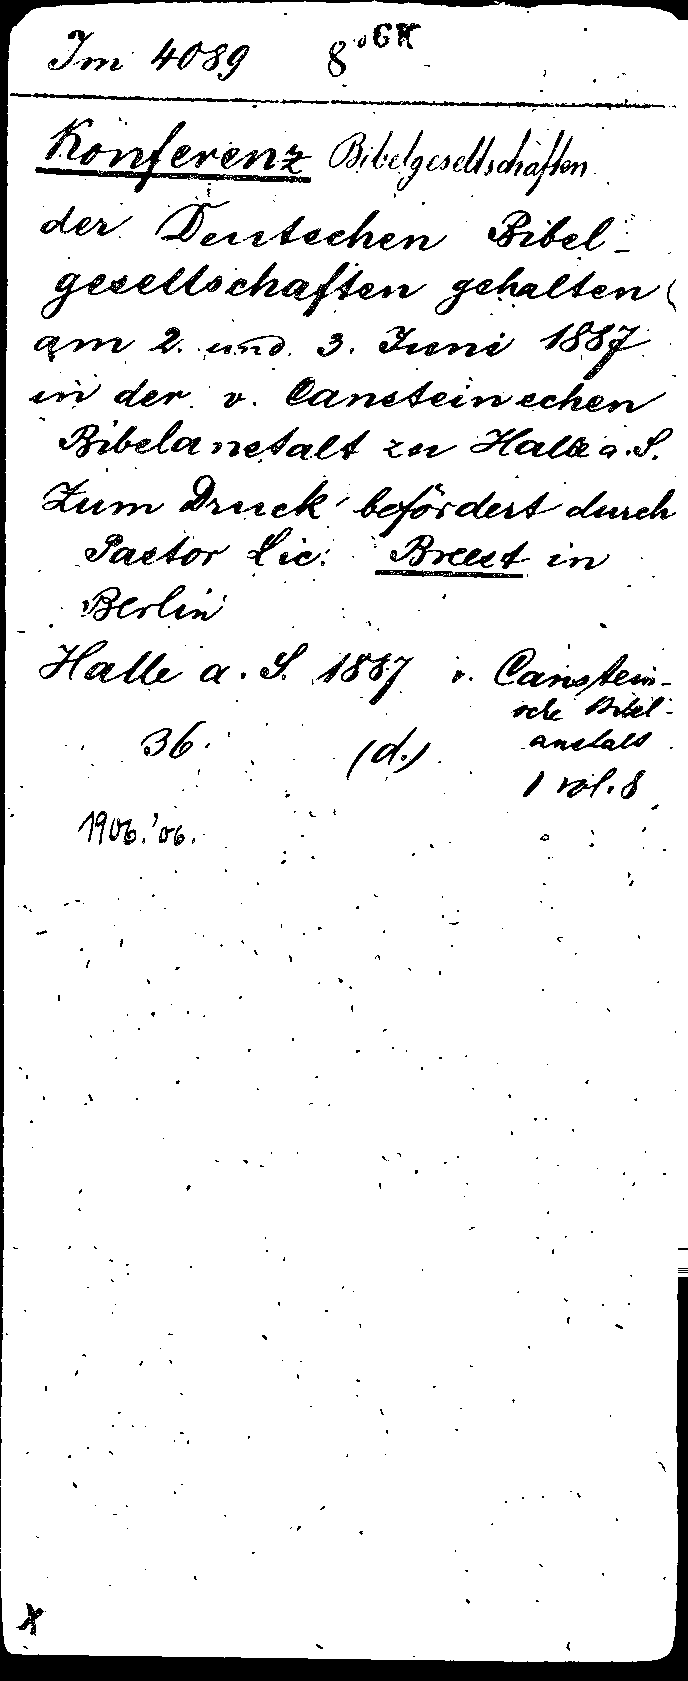 Im 4089 8° GK
Konferenz Bibelgesellschaften
der Deutschen Bibel-
gesellschaften gehalten
am 2. und 3. Juni 1887
in der v. Cansteinschen
Bibelanstalt zu Halle a. S.
Zum Druck befördert durch
Pastor Lic: Breest in
Berlin
Halle a. S. 1887 v. Canstein-
sche Bibel-
36. (d.) anstalt
1 vol. 8
1906.'06.
x